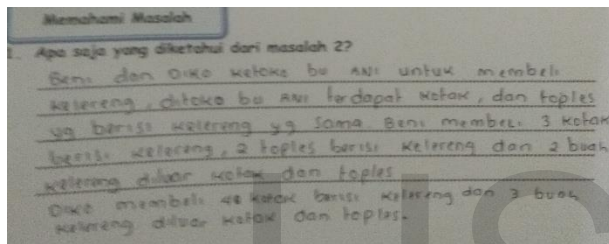 Memahami Masalah
1. Apa saja yang diketahui dari masalah 2?
Beni dan Diko ketoko bu Ani untuk membeli
kelereng, ditoko bu Ani terdapat kotak, dan toples
yg berisi kelereng yg sama. Beni membeli 3 kotak
berisi kelereng, 2 toples berisi kelereng dan 2 buah
kelereng diluar kotak dan toples
Diko membeli kotak berisi kelereng dan 3 buah
kelereng diluar kotak dan toples.